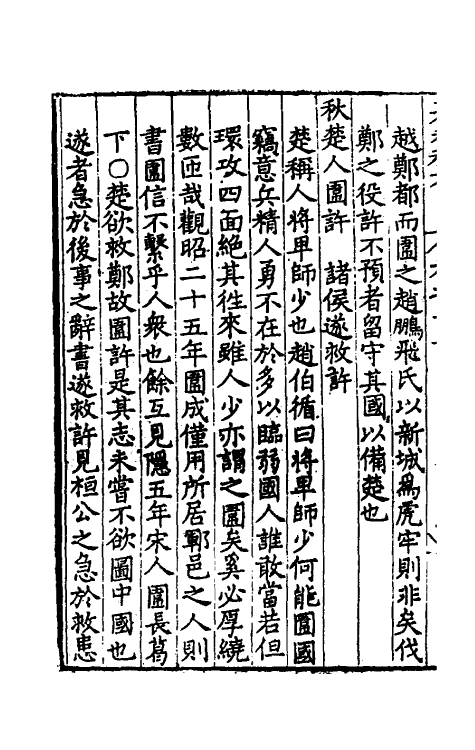 越鄭都而圍之趙鵬飛氏以新城爲虎牢則非矣伐
鄭之役許不預者留守其國以備楚也
秋楚人圍許 諸侯遂救許
楚稱人將卑師少也趙伯循曰將卑師少何能圍國
竊意兵精人勇不在於多以臨弱國人誰敢當若但
環攻四面絶其往來雖人少亦謂之圍矣奚必厚繞
數匝哉觀昭二十五年圍成僅用所居鄆邑之人則
書圍信不繫乎人衆也餘互見隱五年宋人圍長葛
下○楚欲救鄭故圍許是其志未嘗不欲圖中國也
遂者急於後事之辭書遂救許見桓公之急於救患